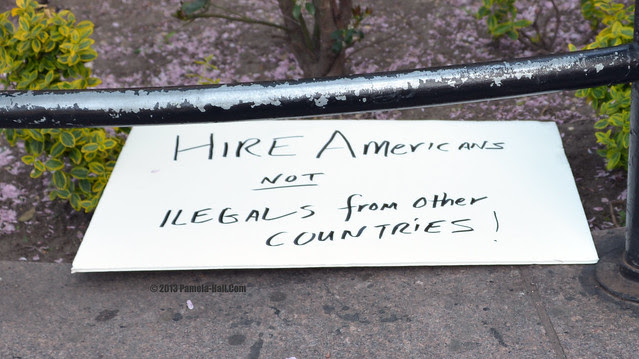 HIRE AMERICANS
NOT
ILEGALS from other
COUNTRIES!
© 2013 Pamela-Hall.Com